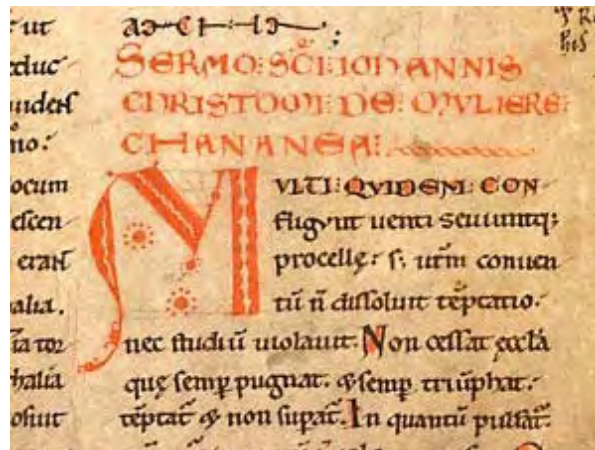 ut
duc
mo.
ocum
escen
alia.
ia tor
halia
osuit
SERMO: SCI: IOHANNIS
CHRISTOMI: DE: MVLIERE:
CHANANEA:
MVLTI: QVIDEM: CON
fligunt uenti seuiuntq;
procellę: s; urm conuen
tū n̄ dissoluit tēptatio.
nec studiū uiolauit. Non cessat eccl̄a
quę semp̄ pugnat. & semp̄ triūphat.
tēptat̄ & non sup̄at̄. In quantū pulsat̄.